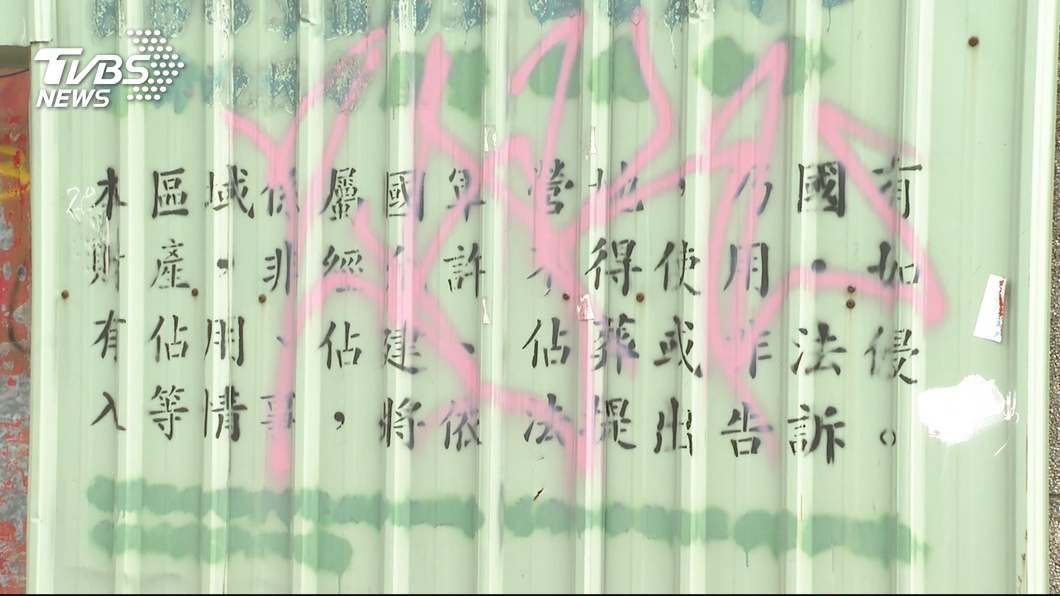 TVBS
NEWS
本區域係屬國軍營地，乃國有
財產．非經允許不得使用．如
有佔用、佔建、佔葬或非法侵
入等情事，將依法提出告訴。